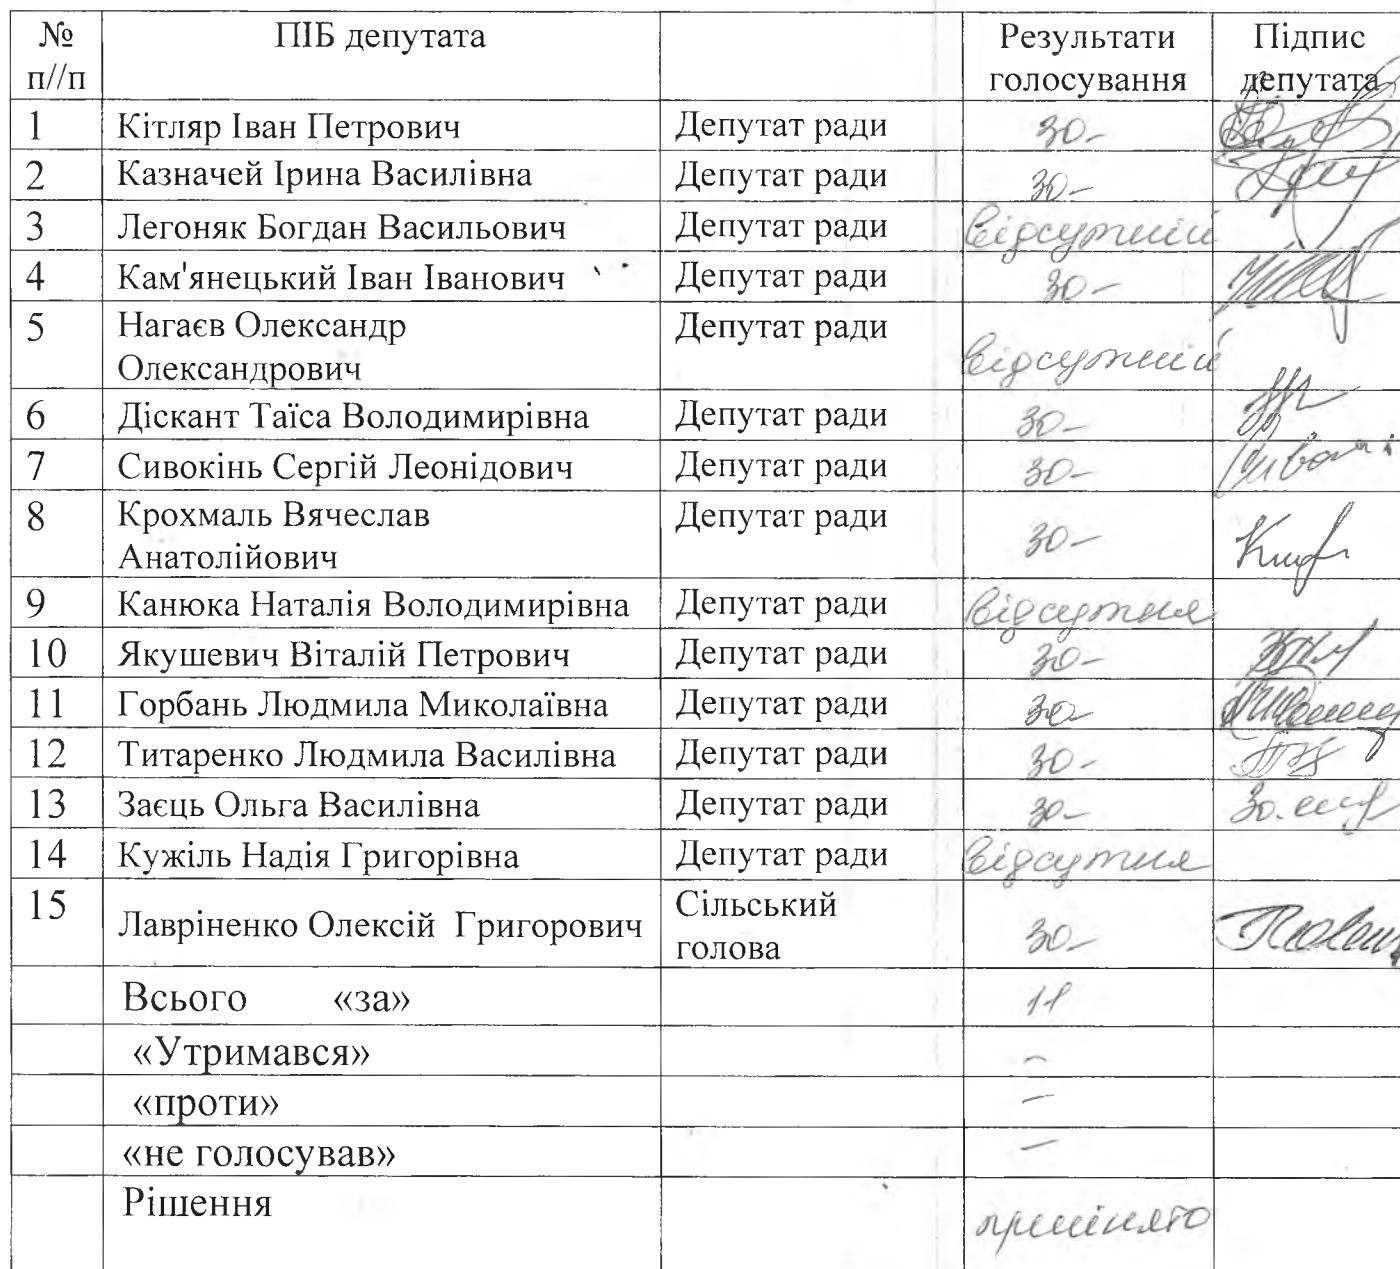 № ПІБ депутата Результати Підпис
п//п голосування депутата
1 Кітляр Іван Петрович Депутат ради за-
2 Казначей Ірина Василівна Депутат ради за-
3 Легоняк Богдан Васильович Депутат ради відсутній
4 Кам'янецький Іван Іванович Депутат ради за-
5 Нагаєв Олександр Депутат ради відсутній
Олександрович
6 Діскант Таїса Володимирівна Депутат ради за-
7 Сивокінь Сергій Леонідович Депутат ради за-
8 Крохмаль Вячеслав Депутат ради за-
Анатолійович
9 Канюка Наталія Володимирівна Депутат ради відсутня
10 Якушевич Віталій Петрович Депутат ради за-
11 Горбань Людмила Миколаївна Депутат ради за-
12 Титаренко Людмила Василівна Депутат ради за-
13 Заєць Ольга Василівна Депутат ради за-
14 Кужіль Надія Григорівна Депутат ради відсутня
15 Лавріненко Олексій Григорович Сільський за-
голова
Всього «за» 11
«Утримався» -
«проти» -
«не голосував» -
Рішення прийнято